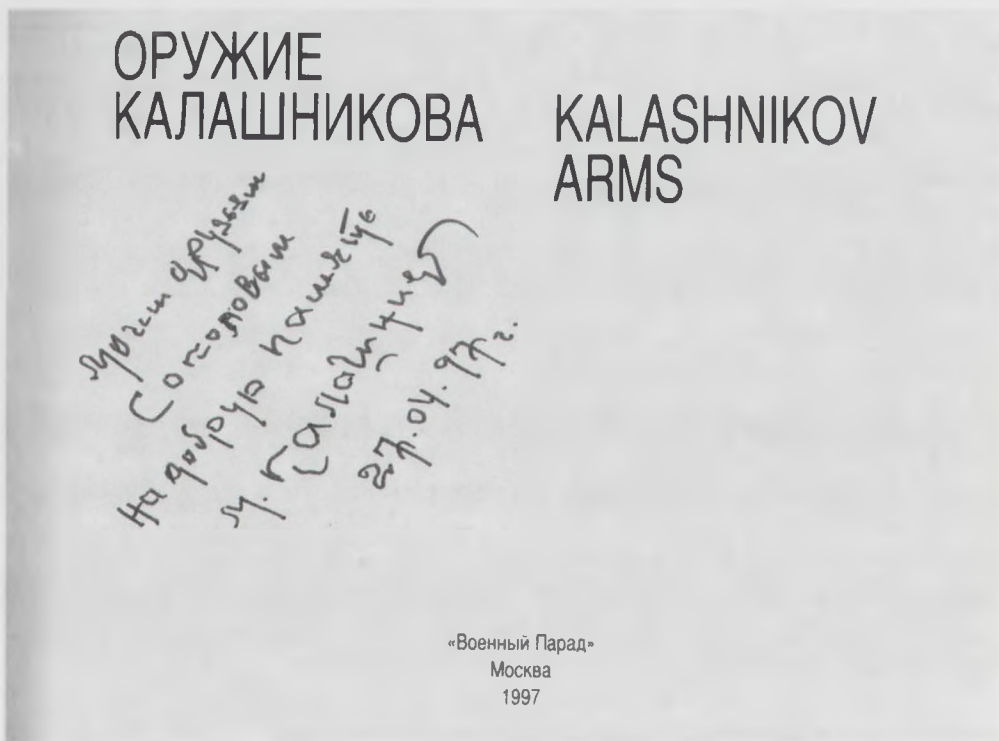 ОРУЖИЕ
КАЛАШНИКОВА
KALASHNIKOV
ARMS
Моим друзьям
на добрую память
М. Калашников
27.04.97 г.
«Военный Парад»
Москва
1997